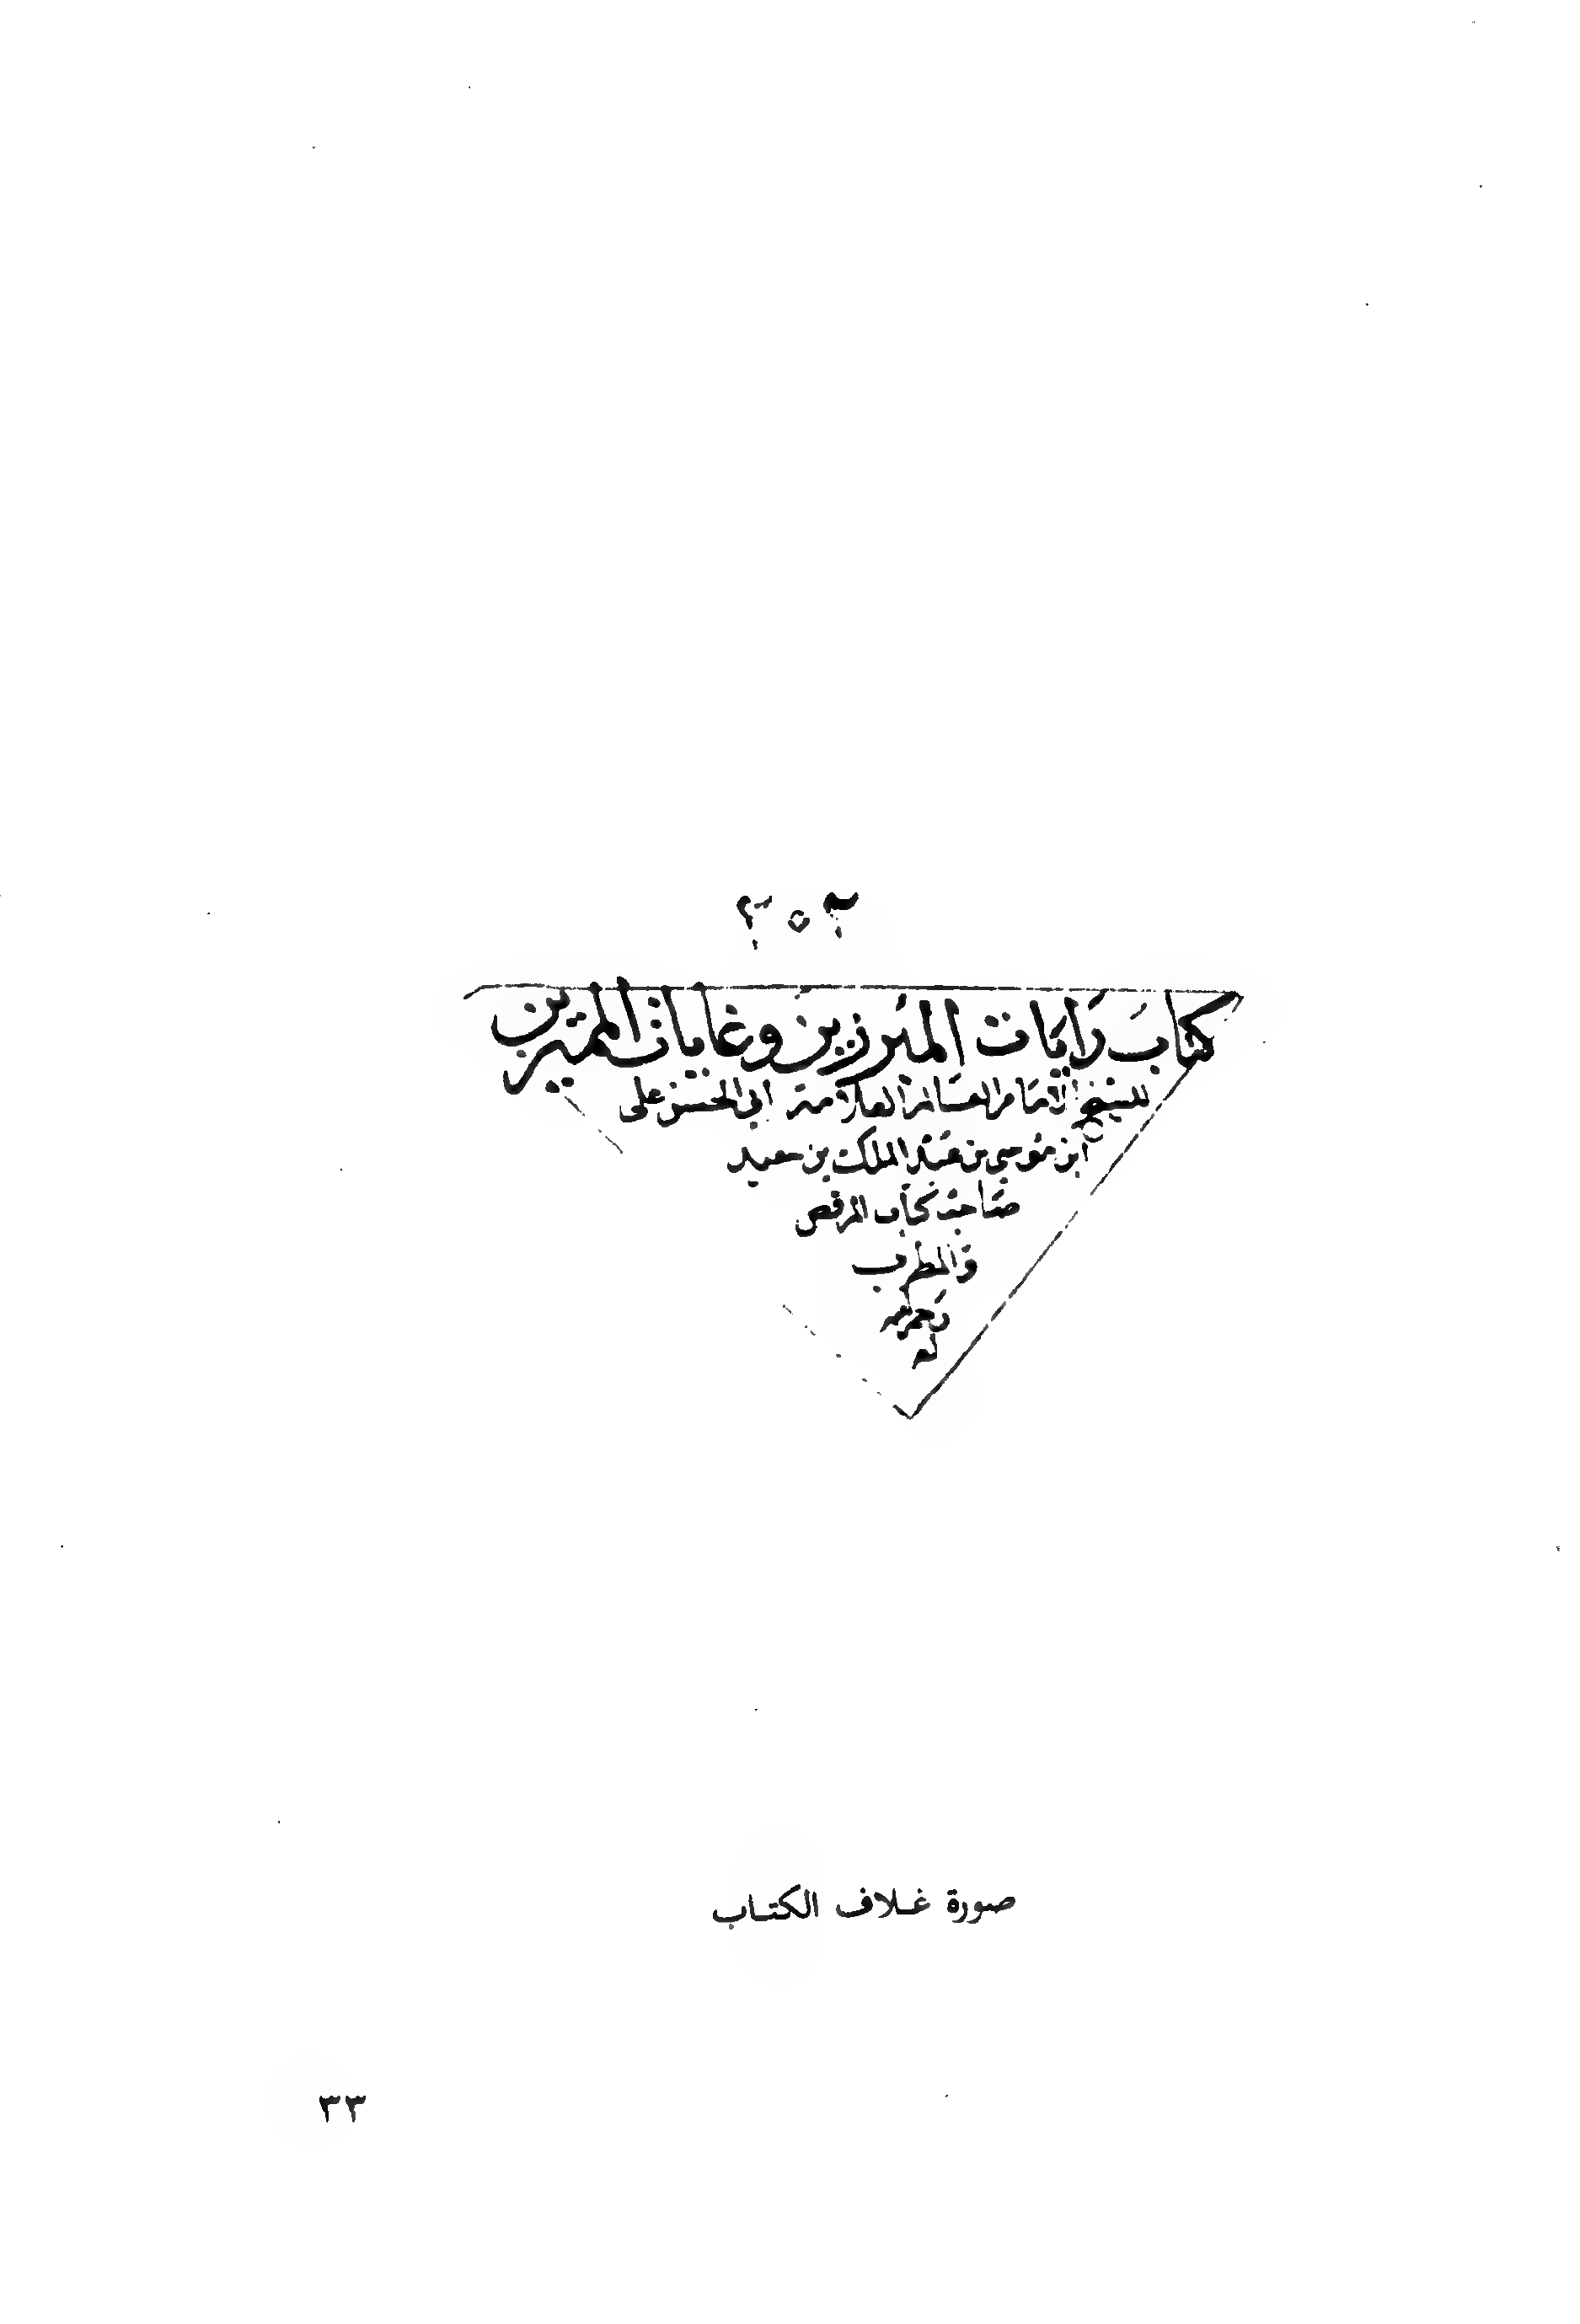 ٣٥٢
كتاب رايات المبرزين وغايات المميزين
للشيخ الإمام العالم العلامة ابى الحسن على
ابن موسى بن عبد الملك بن سعيد
صاحب كتاب المرقص
والمطرب
رحمه
الله
صورة غلاف الكتاب
٣٣